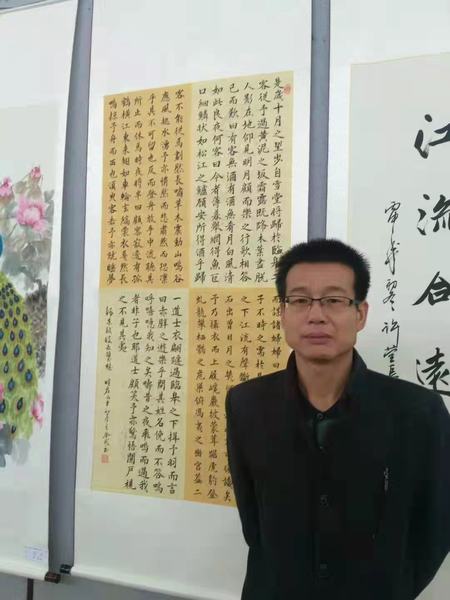 江流合遠
是歲十月之望步自雪堂將歸於臨皋
客從予過黃泥之坂霜露既降木葉盡脫
人影在地仰見明月顧而樂之行歌相答
已而歎曰有客無酒有酒無肴月白風清
如此良夜何客曰今者薄暮舉網得魚巨
口細鱗狀如松江之鱸顧安所得酒乎歸
而謀諸婦婦曰
子不時之需於
之下江流有聲斷
石出曾日月之幾
予乃攝衣而上履巉巖披蒙茸踞虎豹登
虬龍攀栖鶻之危巢俯馮夷之幽宮蓋二
客不能從焉劃然長嘯草木震動山鳴谷
應風起水涌予亦悄然而悲肅然而恐凜
乎其不可留也反而登舟放乎中流聽其
所止而休焉時夜將半四顧寂寥適有孤
鶴橫江東來翅如車輪玄裳縞衣戛然長
鳴掠予舟而西也須臾客去予亦就睡夢
一道士衣翩躚過臨皋之下揖予羽而言
曰赤壁之遊樂乎問其姓名俛而不答嗚
呼噫嘻我知之矣疇昔之夜飛鳴而過我
者非子也耶道士顧笑予亦驚悟開戶視
之不見其處